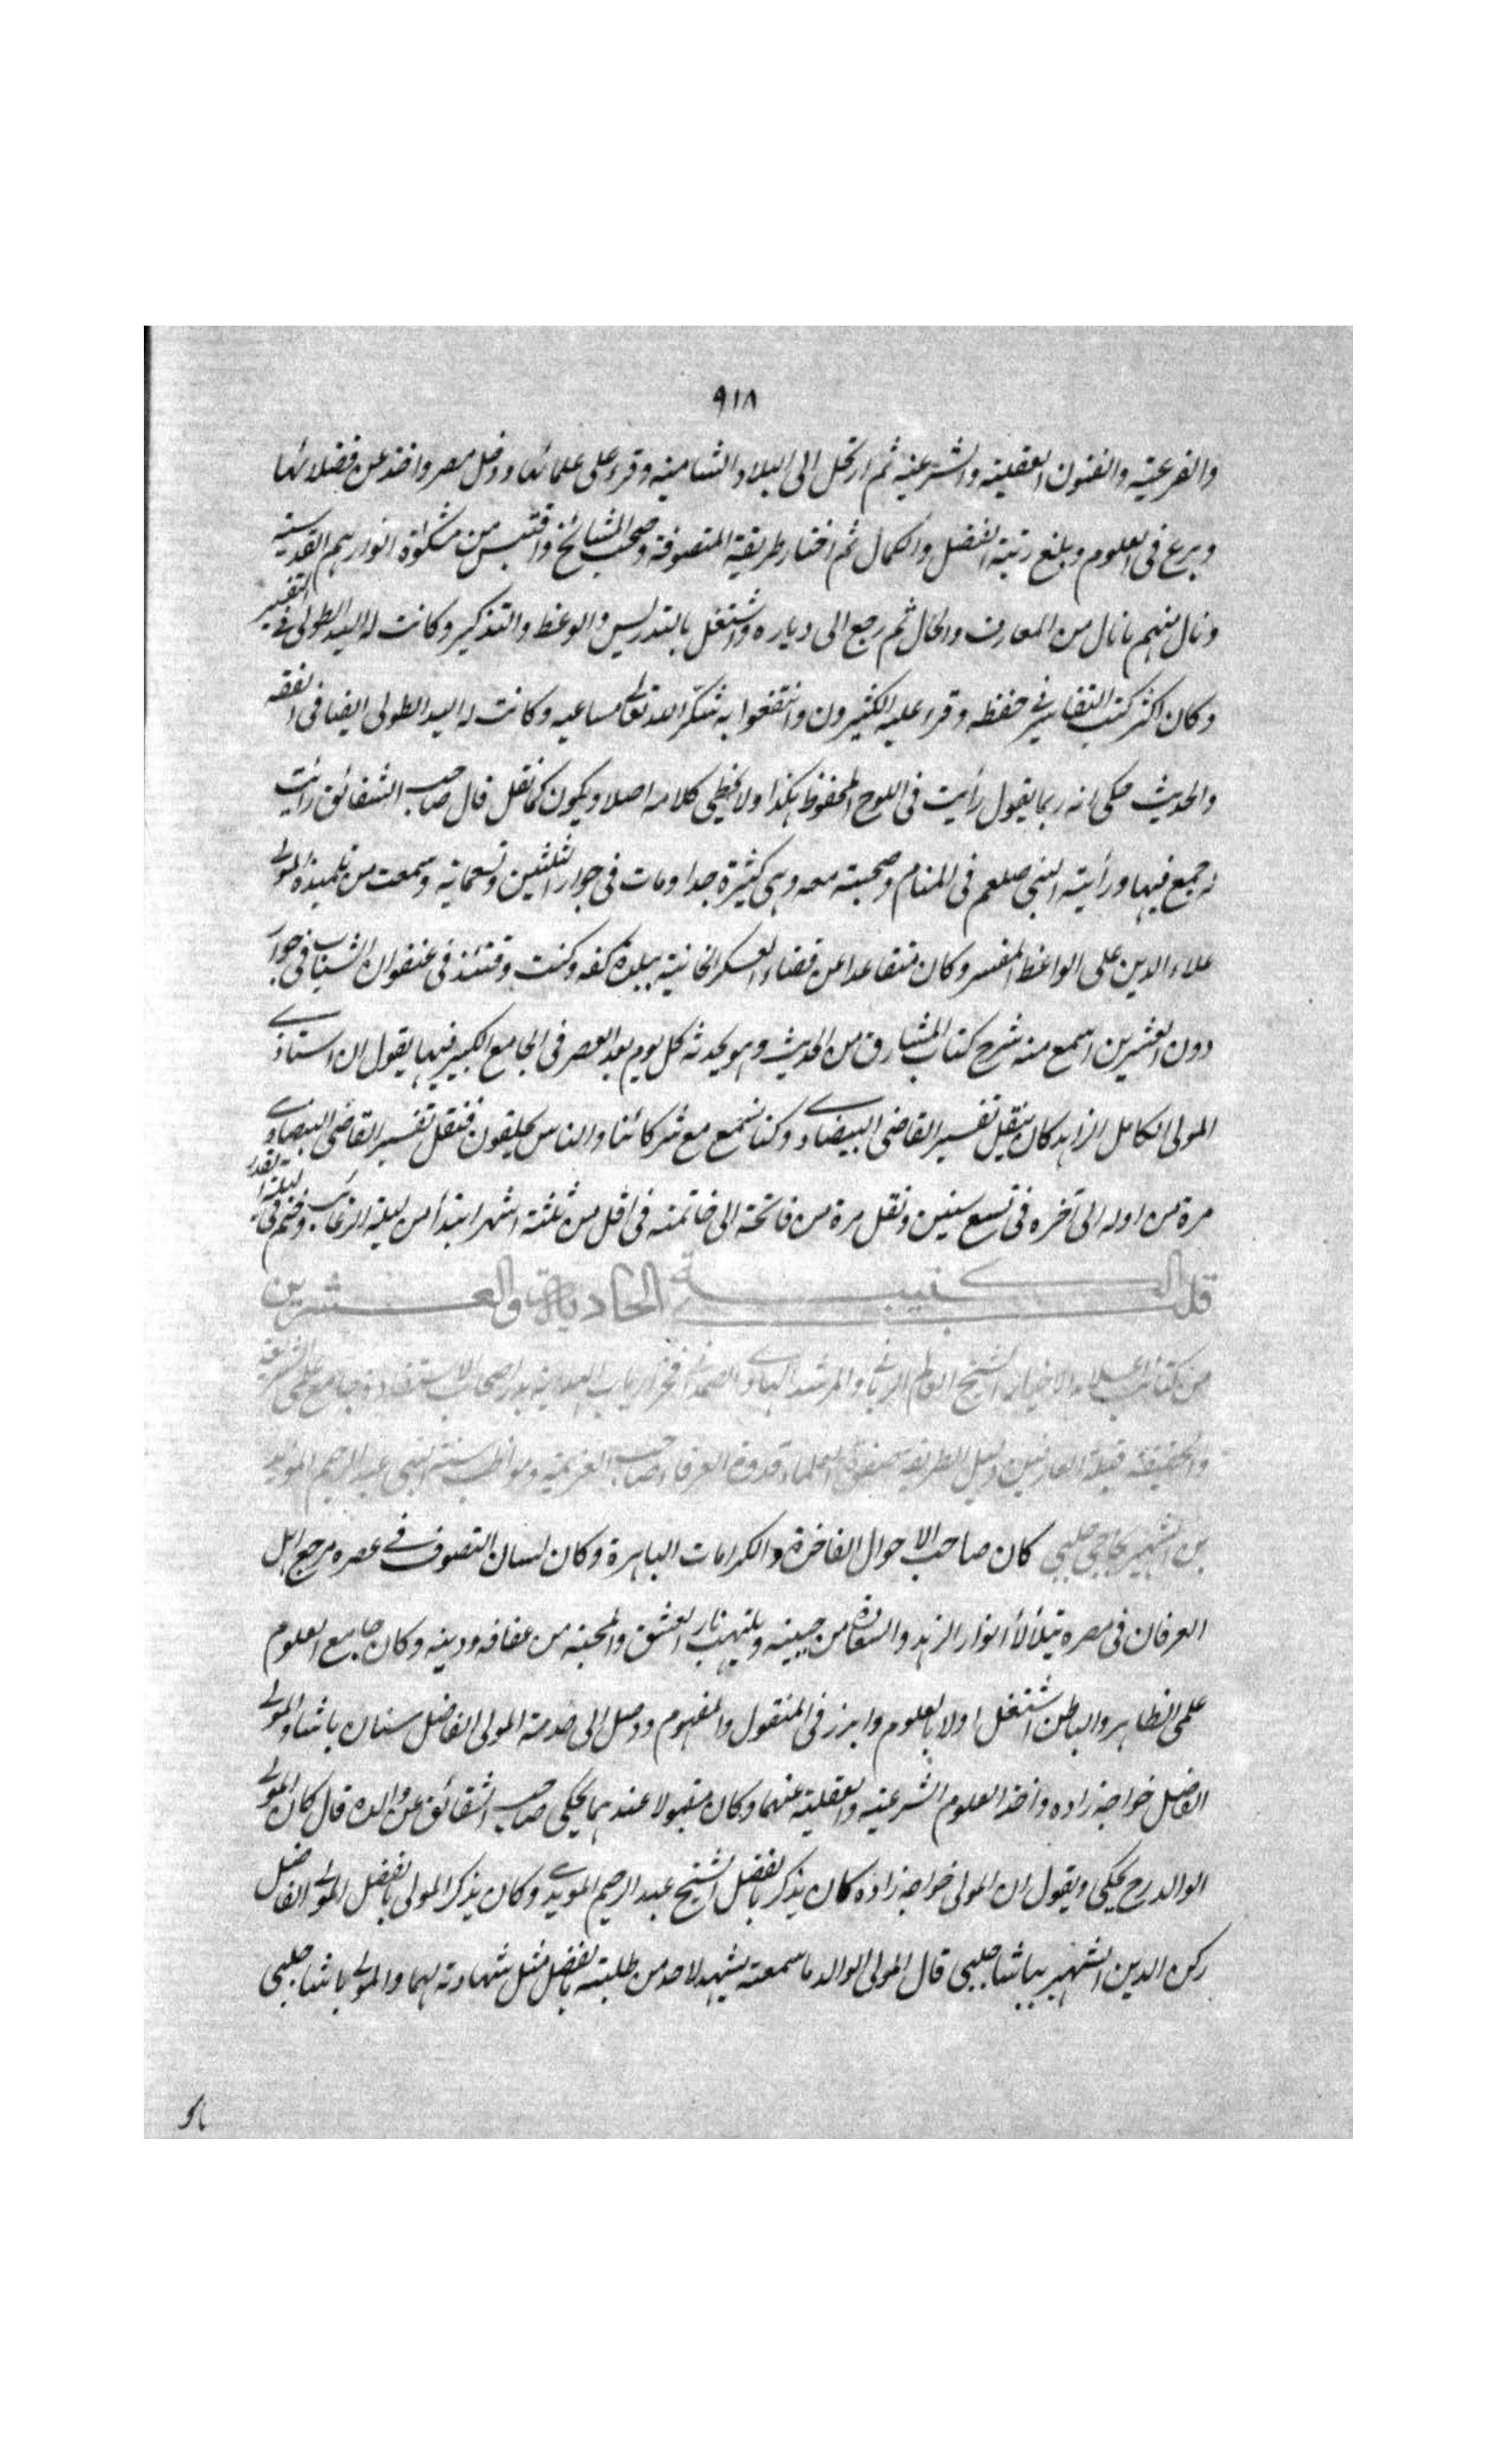 ٩١٨
والفرعية والفنون العقلية والشرعية ثم ارتحل الى البلاد الشامية وقرء على علمائها ودخل مصر واخذ عن فضلائها
وبرع فى العلوم وبلغ رتبة الفضل والكمال ثم اختار طريقة المتصوفة وصحب المشائخ واقتبس من مشكوة انوارهم القدسية
ونال منهم ما نال من المعارف والحال ثم رجع الى دياره واشتغل بالتدريس والوعظ والتذكير وكانت له اليد الطولى فى التفسير
وكان اكثر كتب التفاسير فى حفظه وقرء عليه الكثيرون وانتفعوا به شكر الله تعالى مساعيه وكانت له اليد الطولى ايضا فى الفقه
والحديث حكى انه ربما يقول رأيت فى اللوح المحفوظ هكذا ولا يخطى كلامه اصلا ويكون كما نقل قال صاحب الشقائق رأيت
له جمع فيها ورأيته النبى صلعم فى المنام وصحبته معه وهى كثيرة جدا ومات فى جوار الثلثين وتسعمائة وسمعت من تلميذه المولى
علاء الدين على الواعظ المفسر وكان متقاعدا عن قضاء العسكر الخانية ببلدة كفه وكنت وقتئذ فى عنفوان الشباب فى جوار
دون العشرين اسمع منه شرح كتاب المشارق من الحديث وهو يحدثه كل يوم بعد العصر فى الجامع الكبير فيها يقول ان استاذى
المولى الكامل الزاهد كان ينقل تفسير القاضى البيضاوى وكنا نسمع مع شركائنا والناس يحلقون فنقل تفسير القاضى البيضاوى
مرة من اوله الى آخره فى تسع سنين ونقل مرة من فاتحة الى خاتمته فى اقل من ثلثة اشهر ابتدأ من ليلة الرغائب وختم فى ليلة القدر
الكتيبة الحادية والعشرين
من كتائب اعلام الاخيار الشيخ العالم الربانى والمرشد الهادى الصمدانى فخر ارباب الهداية بدر اصحاب الاستفادة جامع علمى الشريعة
والحقيقة قبلة العارفين دليل الطريقة صفوة العلماء قدوة العرفاء صاحب العزيمة ومواظب سنة النبى عبد الرحيم المؤيدى
بن الشهير بحاجى چلبى كان صاحب الاحوال الفاخرة والكرامات الباهرة وكان لسان التصوف فى عصره مرجع اهل
العرفان فى مصره يتلألأ انوار الزهد والسعادة من جبينه ويلتهب نار العشق والمحبة من عفافه ودينه وكان جامع العلوم
علمى الظاهر والباطن اشتغل اولا بالعلوم وابرز فى المنقول والمفهوم ووصل الى خدمة المولى الفاضل سنان پاشا والمولى
الفاضل خواجه زاده واخذ العلوم الشرعية والعقلية عنهما وكان مقبولا عندهما يحكى صاحب الشقائق عن والده قال كان المولى
الوالد رح يحكى ويقول ان المولى خواجه زاده كان يذكر بالفضل الشيخ عبد الرحيم المؤيدى وكان يذكر المولى بالفضل المولى الفاضل
ركن الدين الشهير بپاشا چلبى قال المولى الوالد ما سمعته يشهد لاحد من طلبته بالفضل مثل شهادته لهما والمولى پاشا چلبى